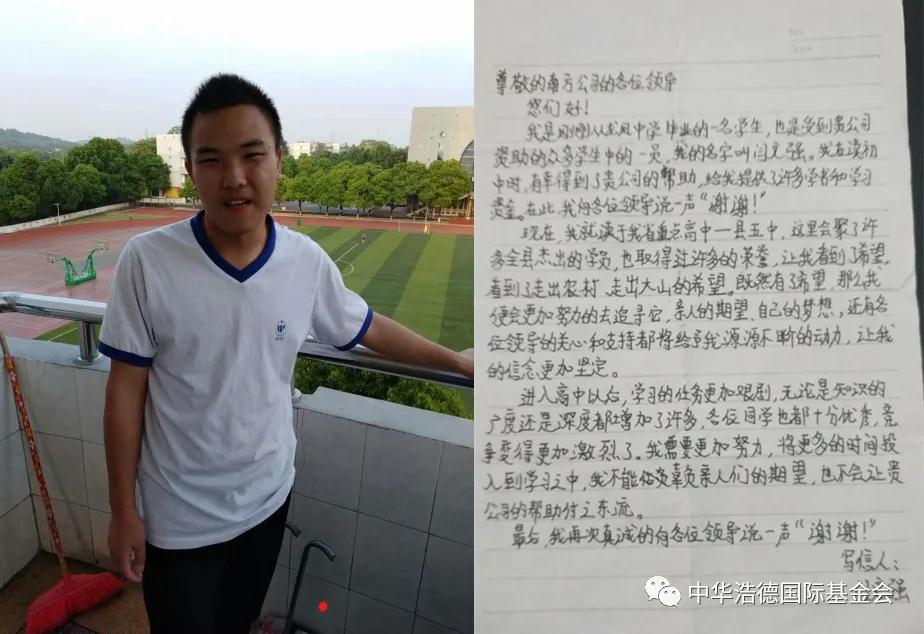 尊敬的南方公司的各位领导
您们好!
我是刚刚从龙凤中学毕业的一名学生,也是受到贵公司
资助的众多学生中的一员,我的名字叫闫文强。我在读初
中时,有幸得到了贵公司的帮助,给我提供了许多学书和学习
资金。在此,我向各位领导说一声“谢谢!”
现在,我就读于我省重点高中一县五中,这里会聚了许
多全县杰出的学员,也取得过许多的荣誉,让我看到了希望,
看到了走出农村、走出大山的希望。既然有了希望,那么我
便会更加努力的去追寻它,亲人的期望、自己的梦想,还有各
位领导的关心和支持都将给予我源源不断的动力,让我
的信念更加坚定。
进入高中以后,学习的任务更加艰剧,无论是知识的
广度还是深度都增加了许多,各位同学也都十分优秀,竞
争变得更加激烈了。我需要更加努力,将更多的时间投
入到学习之中,我不能辜负亲人们的期望,也不会让贵
公司的帮助付之东流。
最后,我再次真诚的向各位领导说一声“谢谢!”
写信人:
强
中华浩德国际基金会